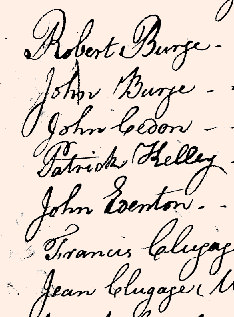 Robert Burge -
John Burge - -
John Cedon - -
Patrick Kelley -
John Eventon - -
Francis Clugag
Jean Clugage (M